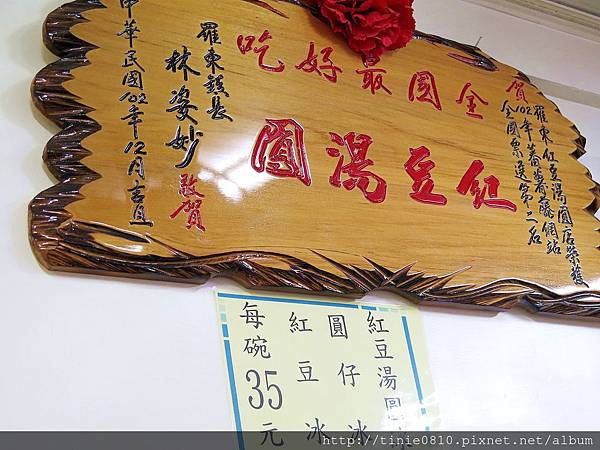 賀
羅東紅豆湯圓店榮獲
102年蕃薯藤網站
全國票選第二名
全國最好吃
紅豆湯圓
羅東鎮長
林姿妙
敬賀
中華民國102年12月吉旦
紅豆湯圓
圓仔冰
紅豆冰
每碗35元
http://tinie0810.pixnet.net/album